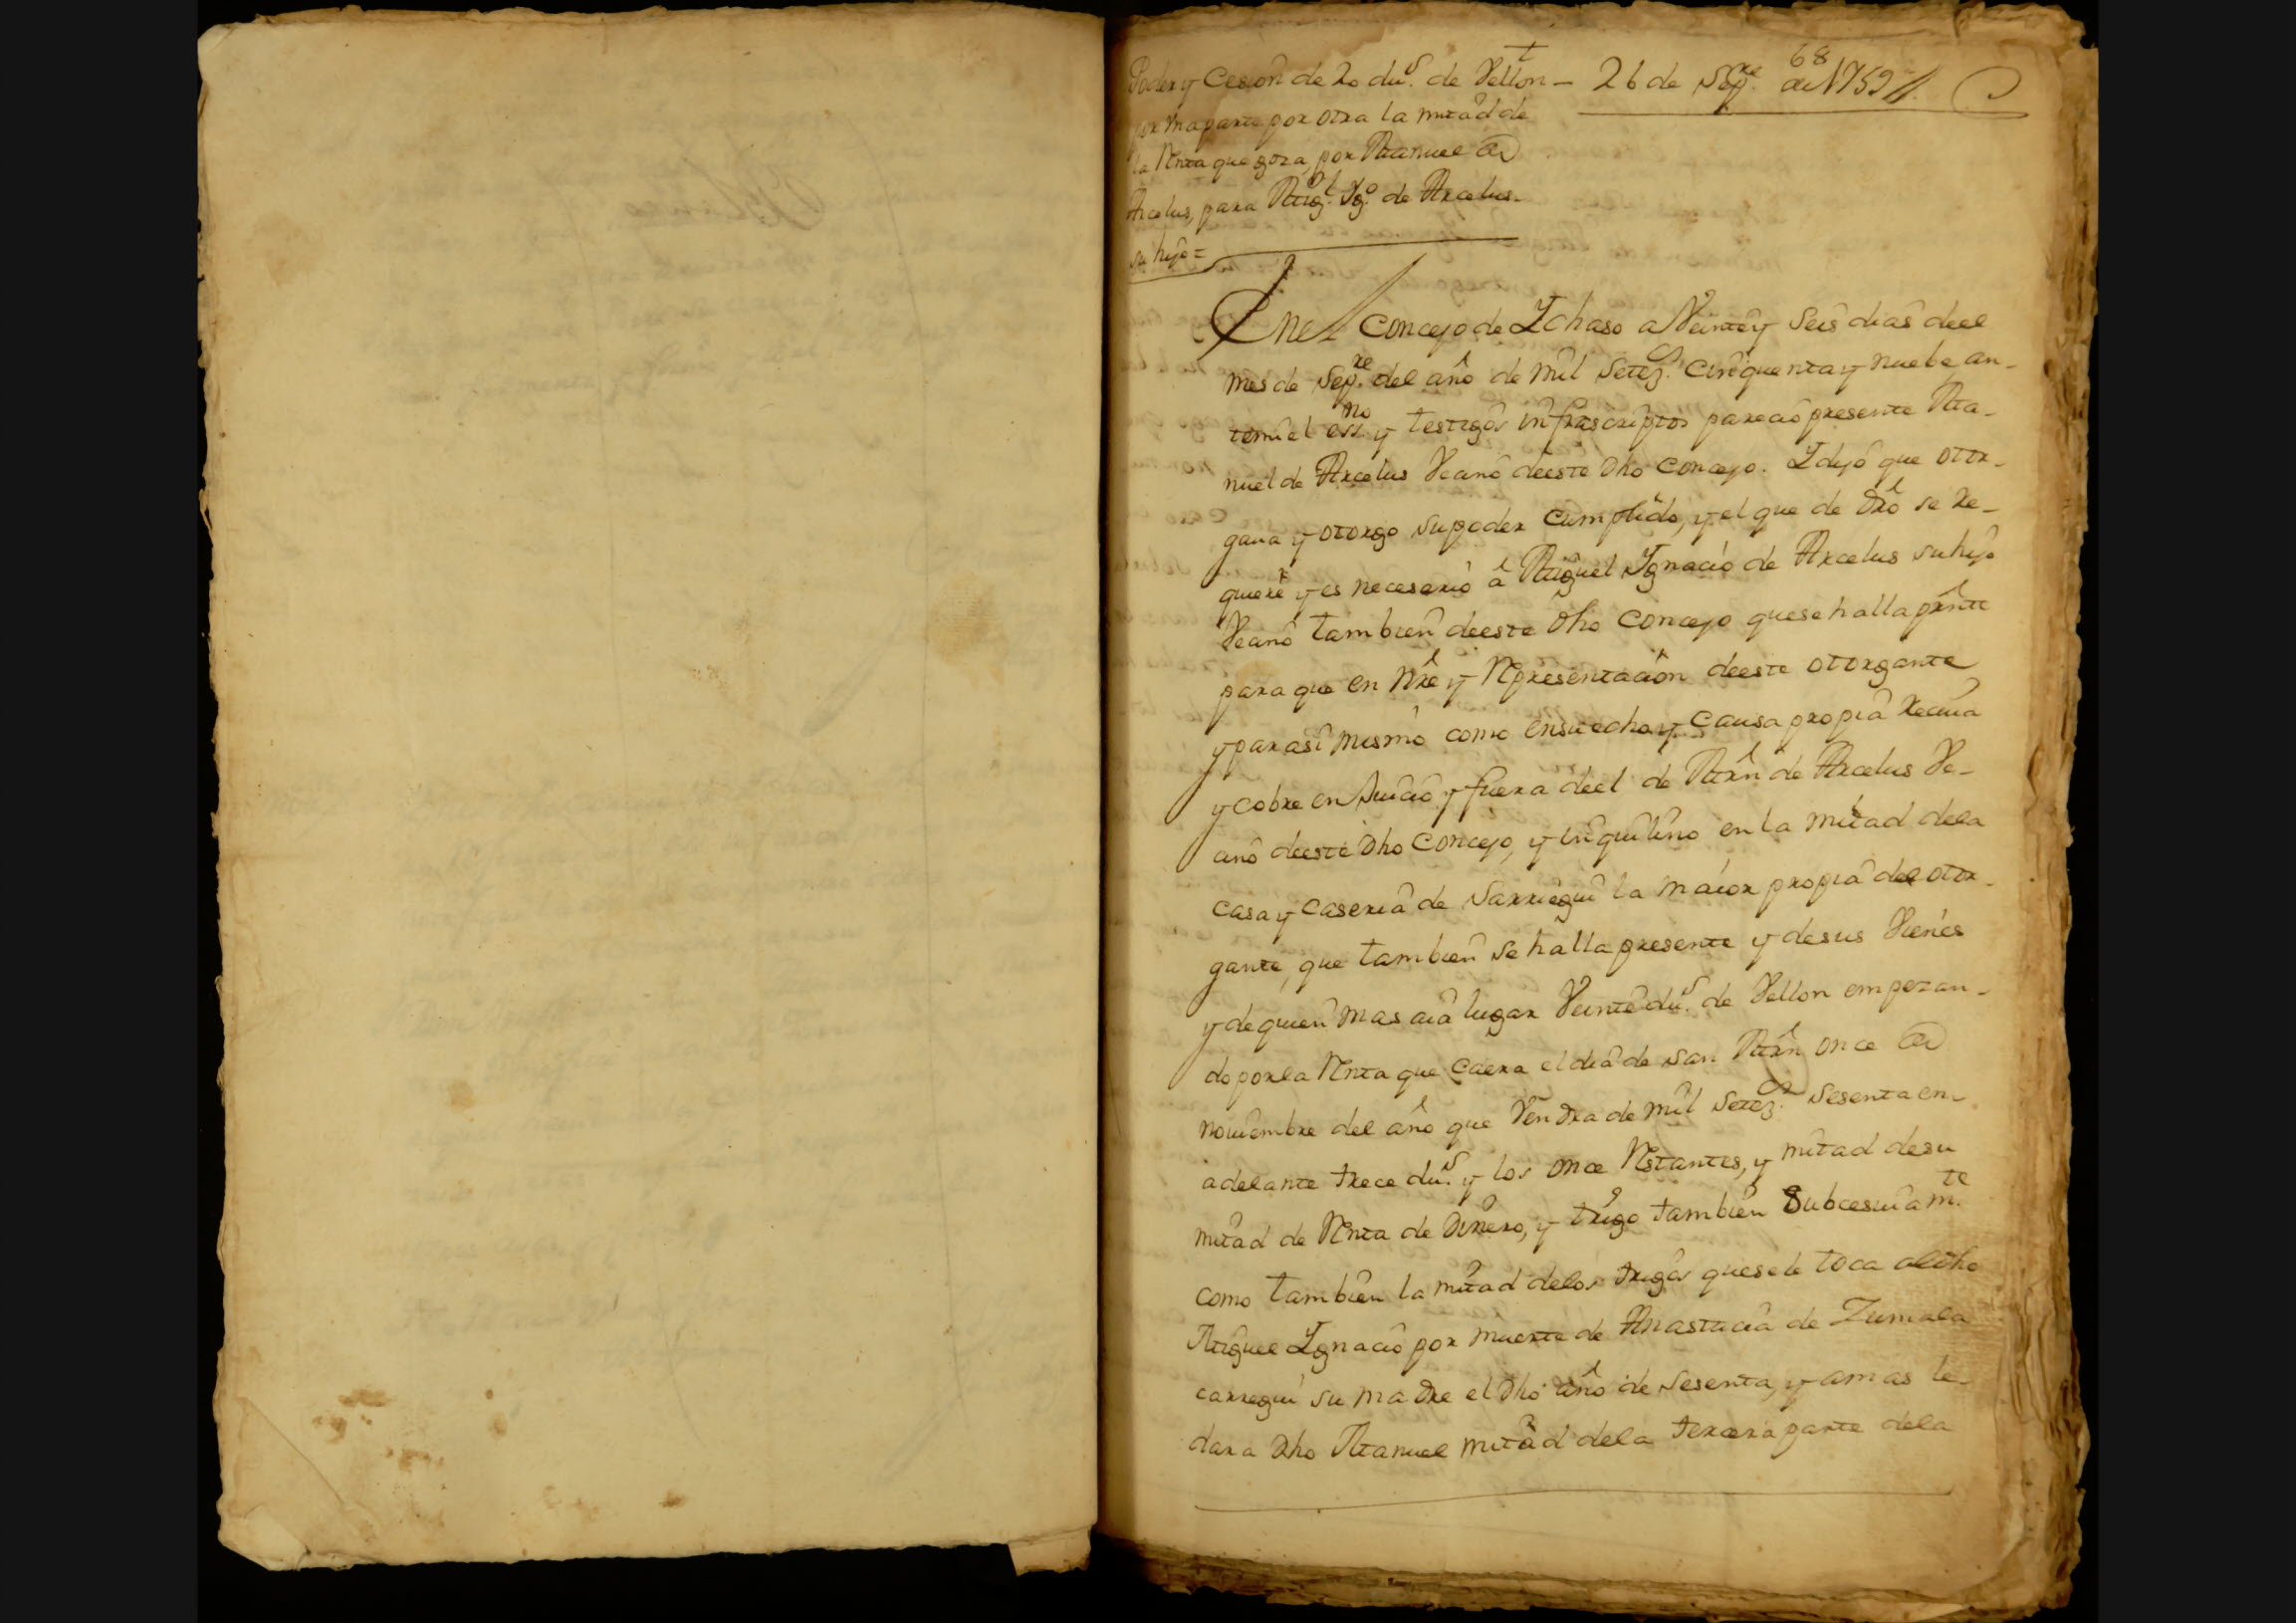 68
Poder y Cesion de 20 du.s de Vellon – 26 de Sep.re de 1759 //.
por una parte por otra la mitad de
la Renta que goza, por Manuel de
Arcelus, para Mig.l Ig.o de Arcelus
su hijo =
En el Concejo de Ichaso a Veinte y Seis dias deel
mes de Sep.re del año de mil Setez.s Cinquenta y nuebe an-
temi el ess.no y testigos infrascriptos parecio presente Ma-
nuel de Arcelus Vecino deeste dho Concejo. Y dijo que otor-
gaua y otorgo su poder cumplido, y el que de dro se re-
quiere y es necesario â Miguel Ygnacio de Arcelus su hijo
Vecino tambien deeste dho Concejo quese halla prnte
para que en nre y Representacion deeste otorgante
y parasi mismo como ensu echo y Causa propia reciua
y cobre en Juicio y fuera deel de Mrn de Arcelus Ve-
cino deeste dho Concejo, y inquilino en la mitad dela
casa y caseria de Sarriegui la maior propia del otor-
gante, que tambien se halla presente y desus Vienes
y dequien mas aia lugar Veinte du.s de Vellon empezan-
do porla Renta que Caera el dia de San Mrn once de
nouiembre del año que Vendra de mil Setez.s Sesenta en
adelante trece du.s y los once Restantes, y mitad desu
mitad de Renta de dinero, y trigo tambien Subcesiuam.te
como tambien la mitad delos trigos quesele toca al dho
Miguel Ygnacio por muerte de Anastacia de Zumala
carregui su madre el dho año de Sesenta, y amas le
dara dho Manuel mitad dela tercera parte dela